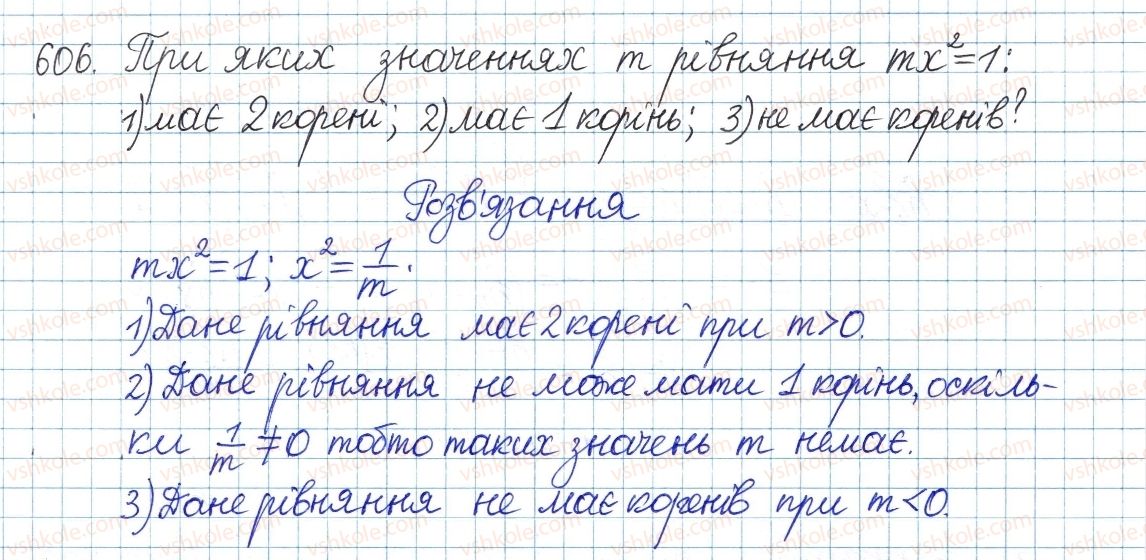 606. При яких значеннях m рівняння mx²=1:
1) має 2 корені; 2) має 1 корінь; 3) не має коренів?
Розв'язання
mx²=1; x²=1/m.
1) Дане рівняння має 2 корені при m>0.
2) Дане рівняння не може мати 1 корінь, оскіль-
ки 1/m≠0 тобто таких значень m немає.
3) Дане рівняння не має коренів при m<0.